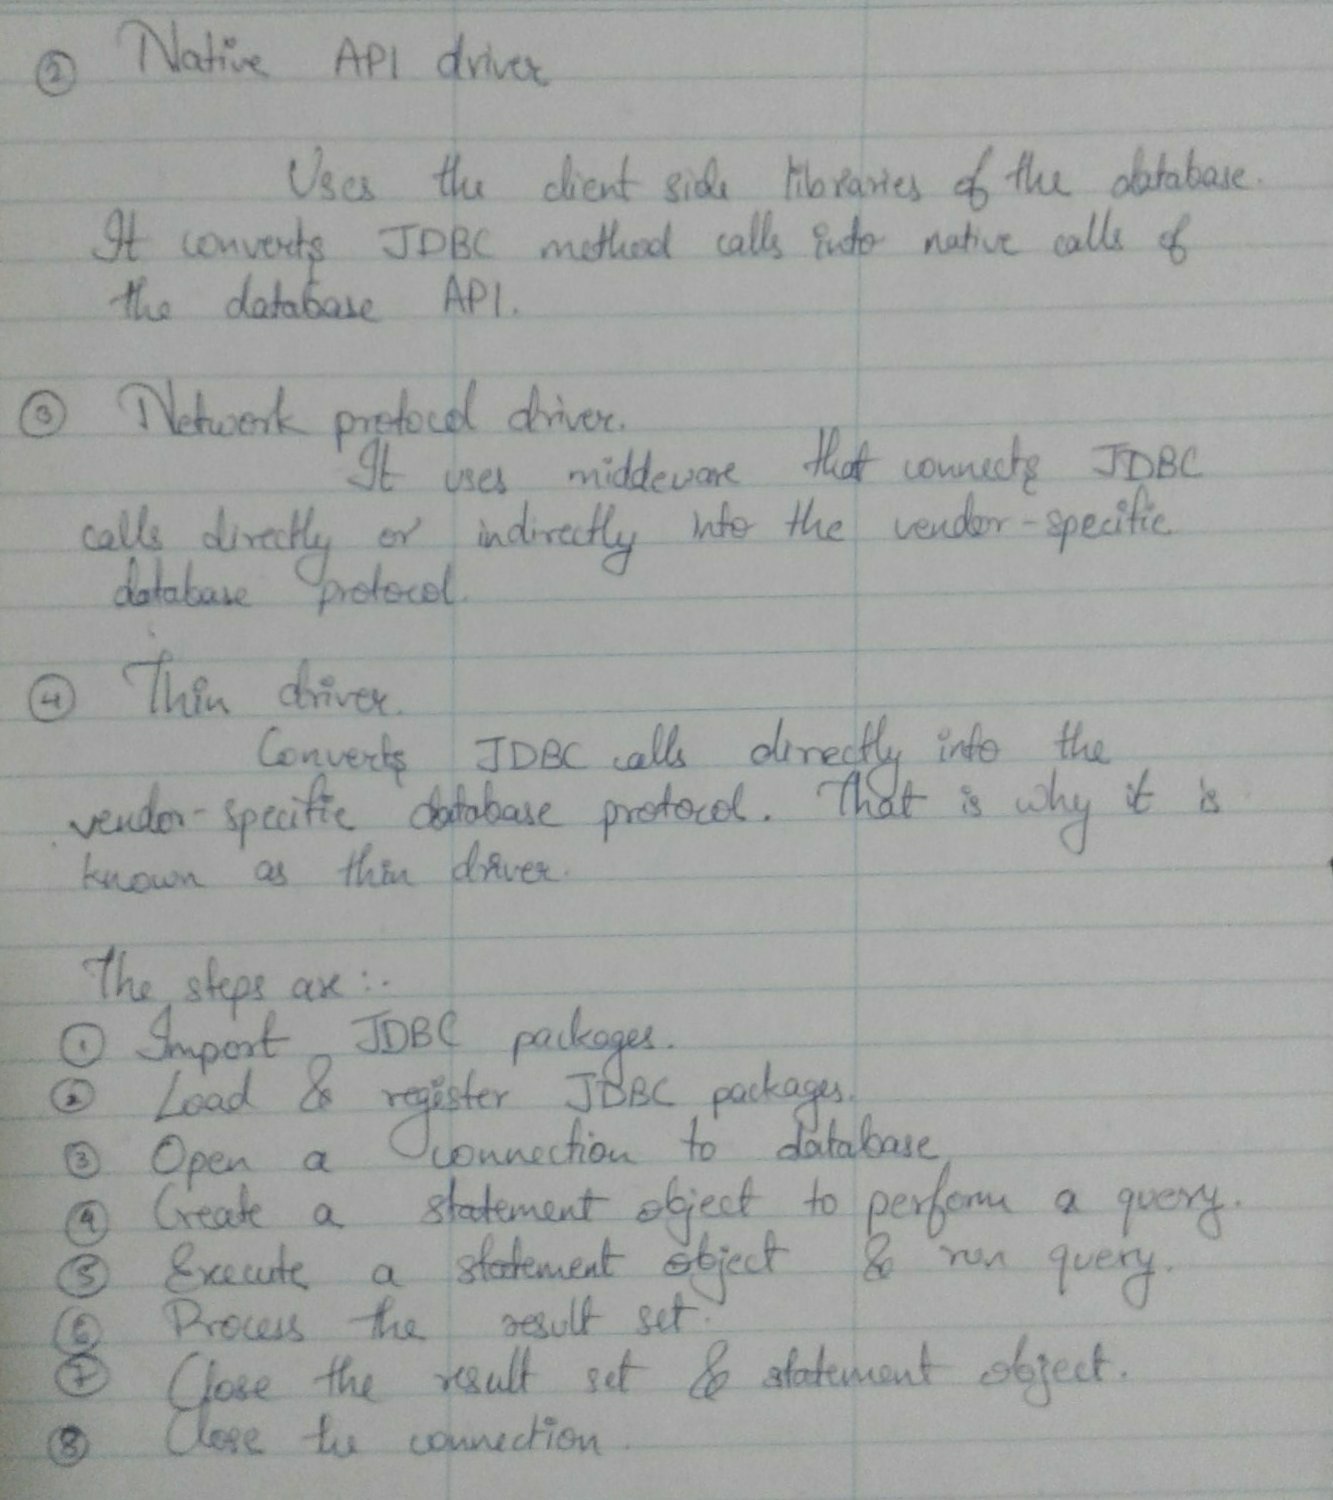 ② Native API driver
Uses the client side libraries of the database.
It converts JDBC method calls into native calls of
the database API.
③ Network protocol driver.
It uses middeware that connects JDBC
calls directly or indirectly into the vendor-specific
database protocol.
④ Thin driver.
Converts JDBC calls directly into the
vendor-specific database protocol. That is why it is
known as thin driver.
The steps are :-
① Import JDBC packages.
② Load & register JDBC packages.
③ Open a connection to database
④ Create a statement object to perform a query.
⑤ Execute a statement object & run query.
⑥ Process the result set.
⑦ Close the result set & statement object.
⑧ Close the connection.